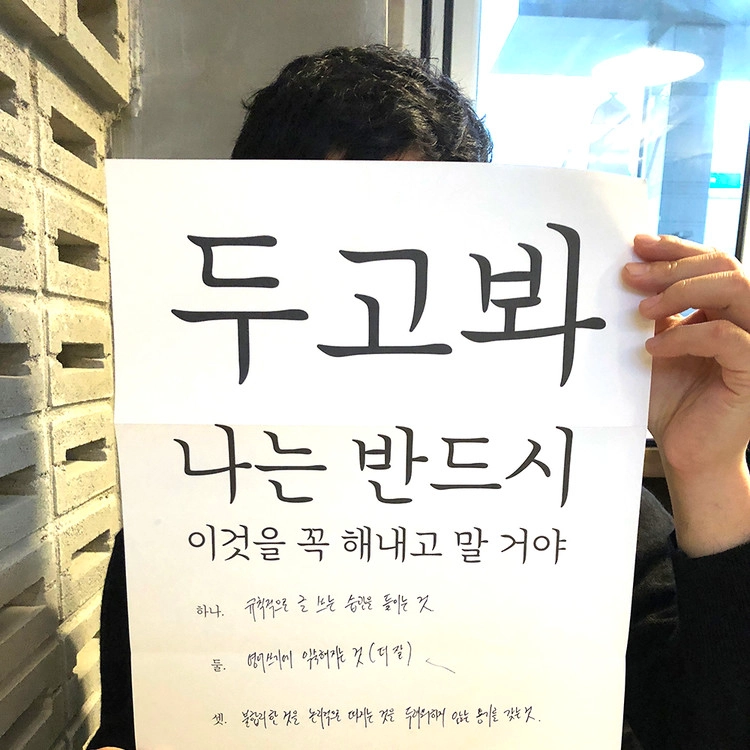 두고봐
나는 반드시
이것을 꼭 해내고 말 거야
하나. 규칙적으로 글 쓰는 습관을 들이는 것
둘. 영어쓰기에 익숙해지는 것 (더 잘)
셋. 불합리한 것을 논리적으로 따지는 것을 두려워하지 않는 용기를 갖는 것.